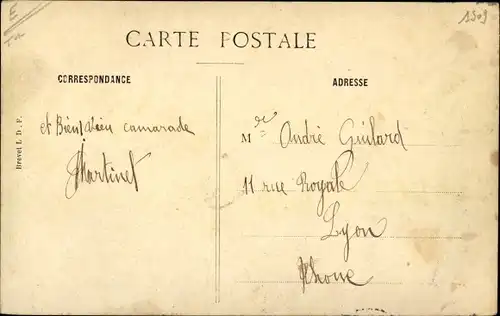 E
1509
CARTE POSTALE
CORRESPONDANCE
ADRESSE
et Bien le bien camarade
Martinet
M André Guilard
11 rue Royale
Lyon
Rhone
Brevet L. D. F.